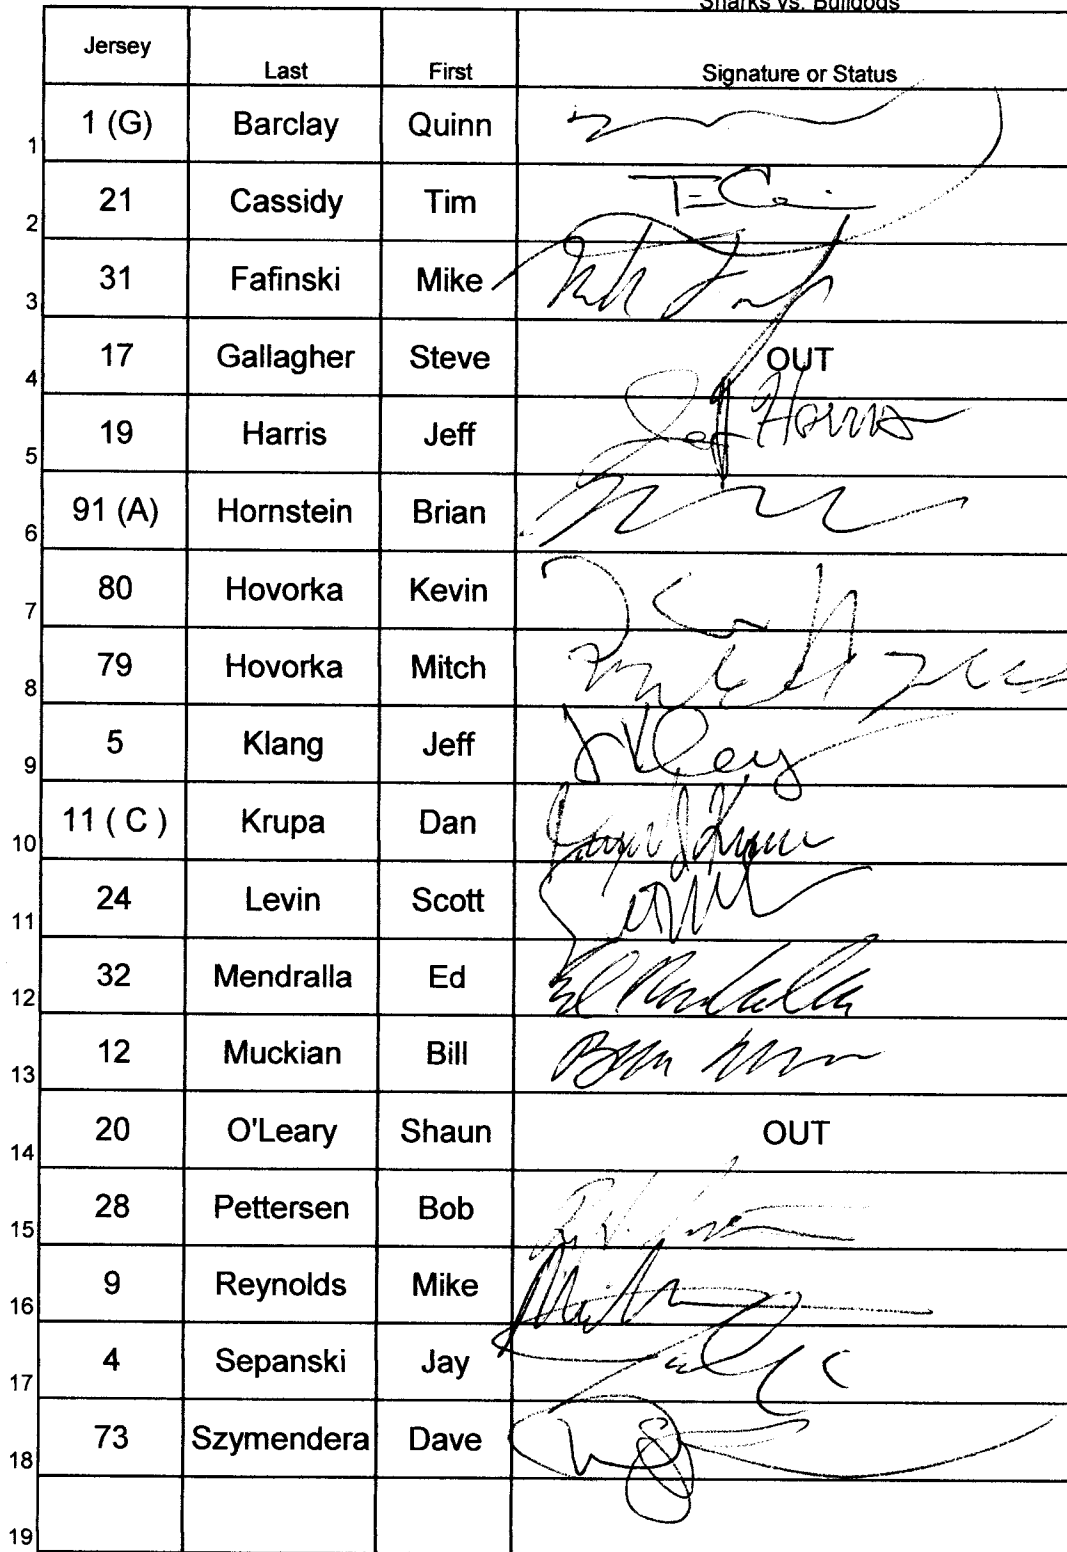 Sharks vs. Bulldogs
Jersey Last First Signature or Status
1 1 (G) Barclay Quinn
2 21 Cassidy Tim
3 31 Fafinski Mike
4 17 Gallagher Steve OUT
5 19 Harris Jeff Jeff Harris
6 91 (A) Hornstein Brian
7 80 Hovorka Kevin
8 79 Hovorka Mitch
9 5 Klang Jeff
10 11 ( C ) Krupa Dan
11 24 Levin Scott
12 32 Mendralla Ed Ed Mendralla
13 12 Muckian Bill
14 20 O'Leary Shaun OUT
15 28 Pettersen Bob
16 9 Reynolds Mike
17 4 Sepanski Jay
18 73 Szymendera Dave
19